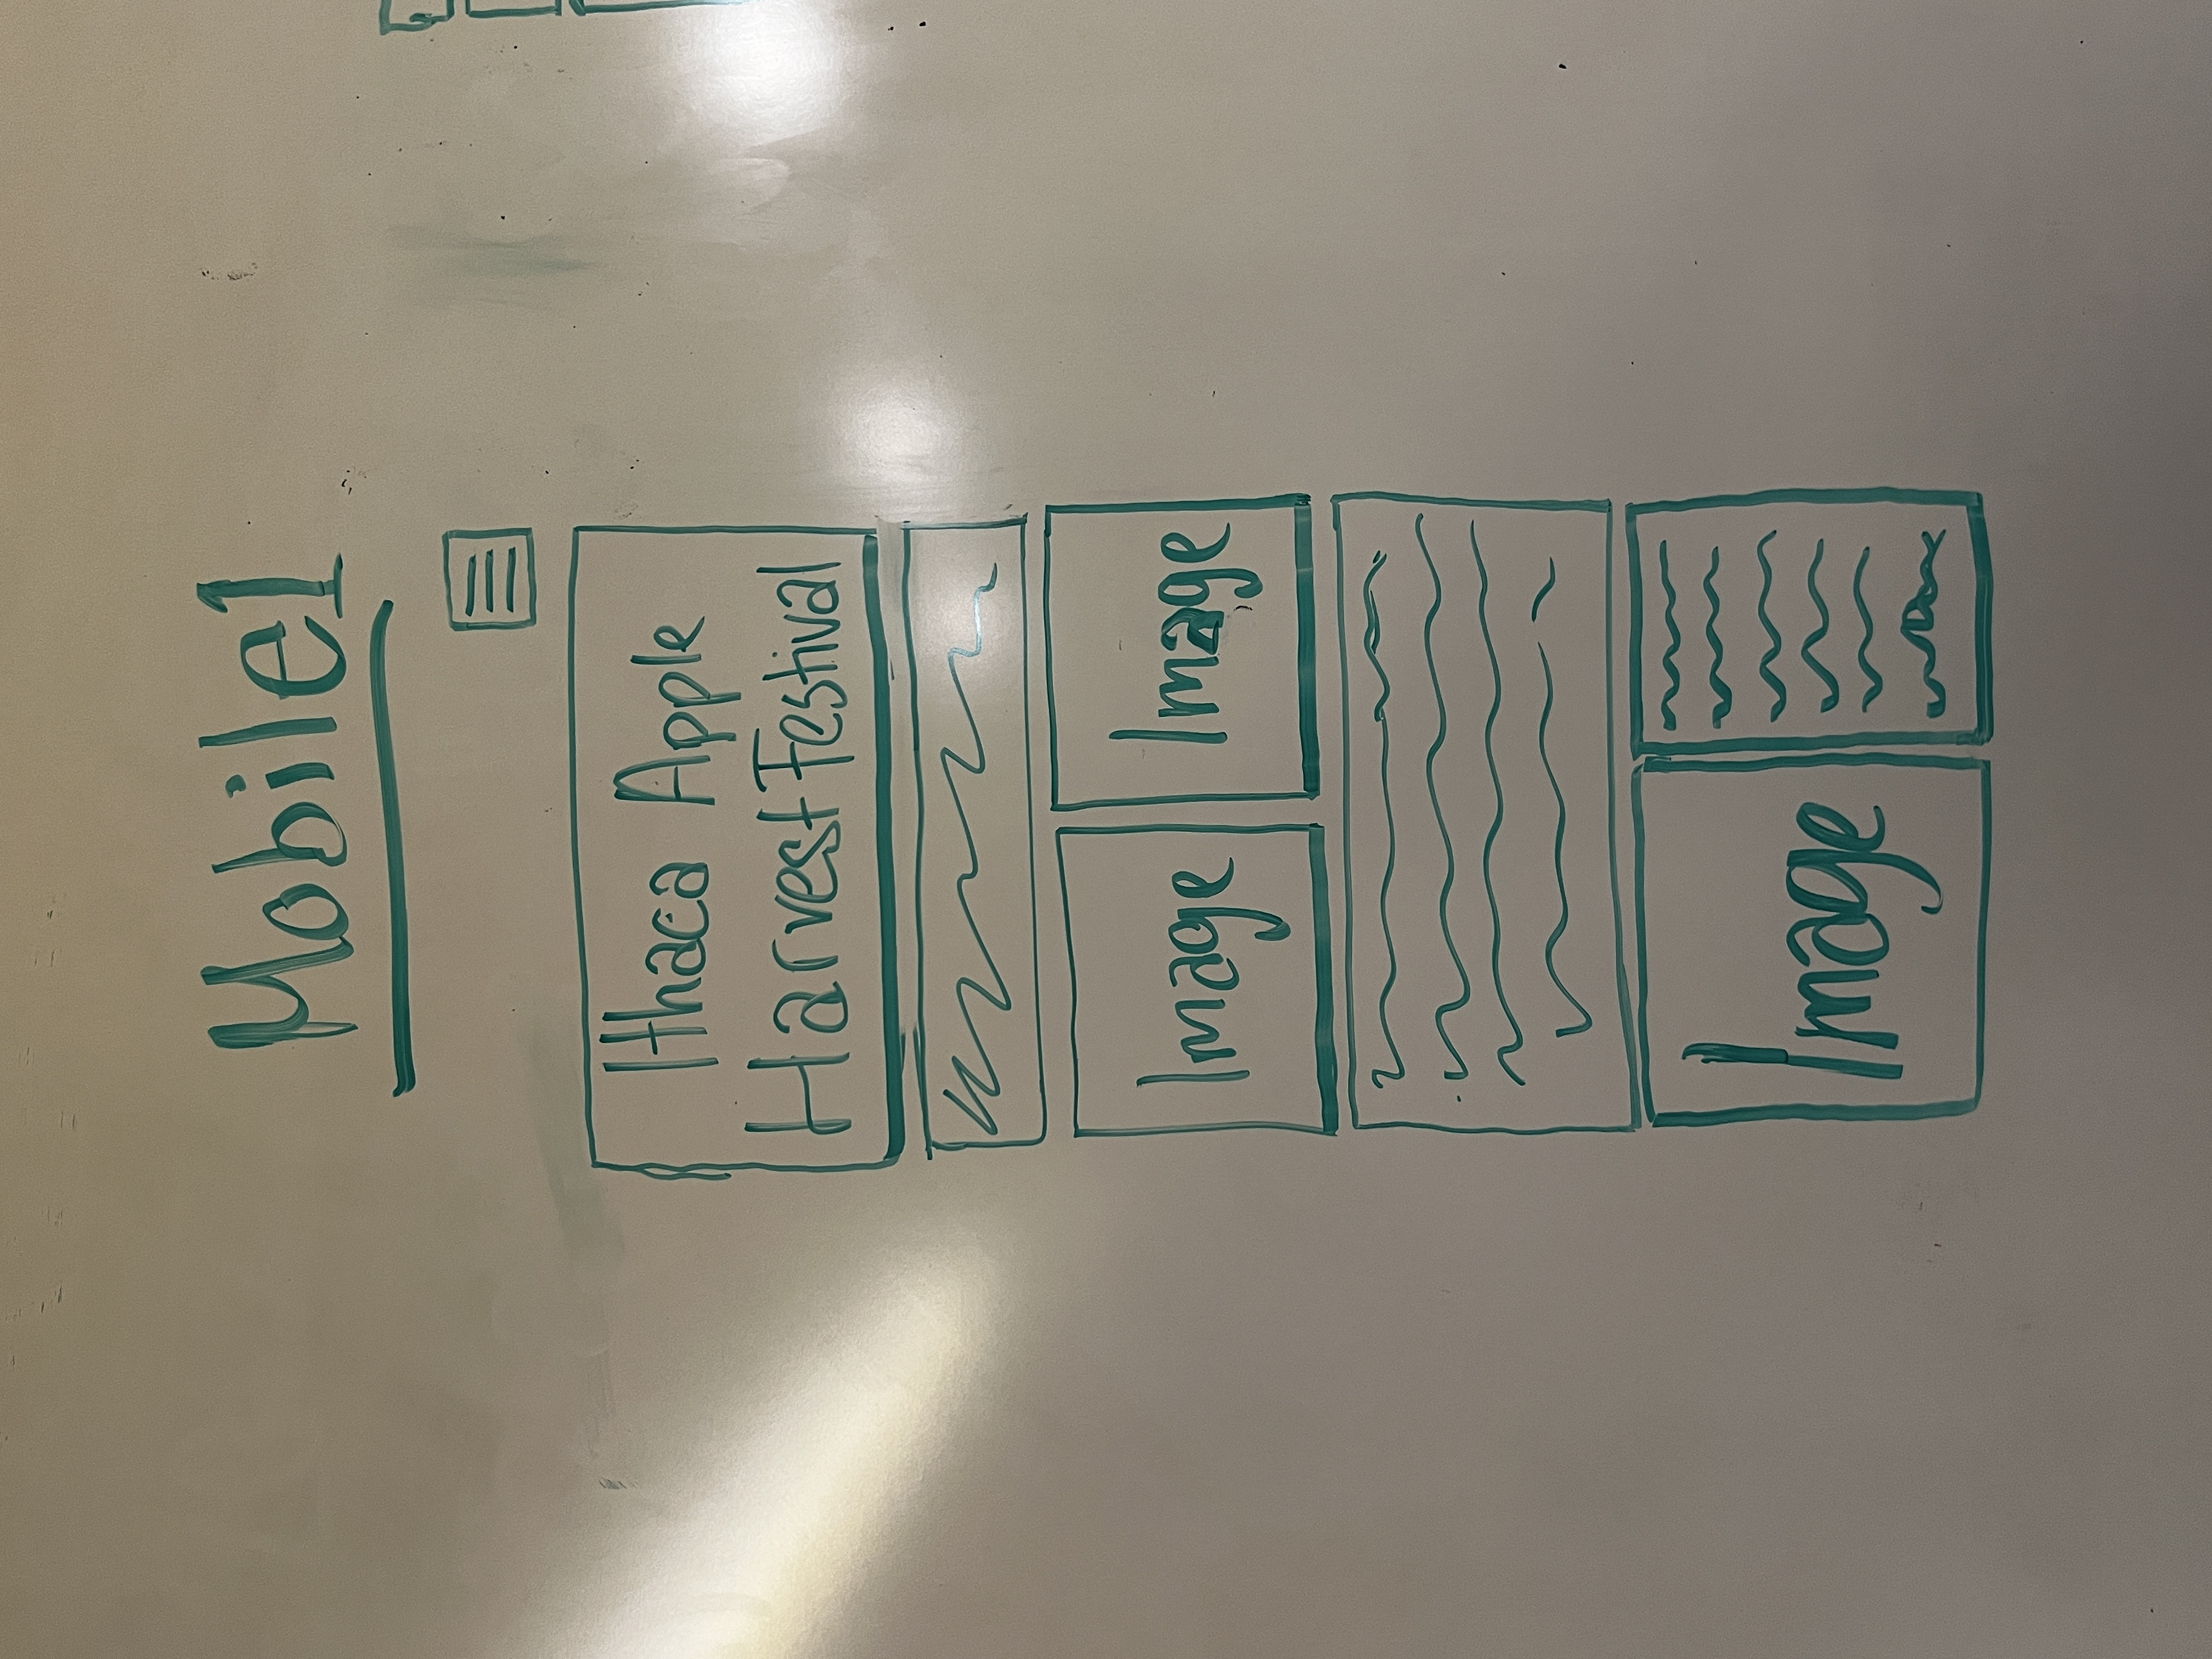 Mobile1
Ithaca Apple
Harvest Festival
Image
Image
Image